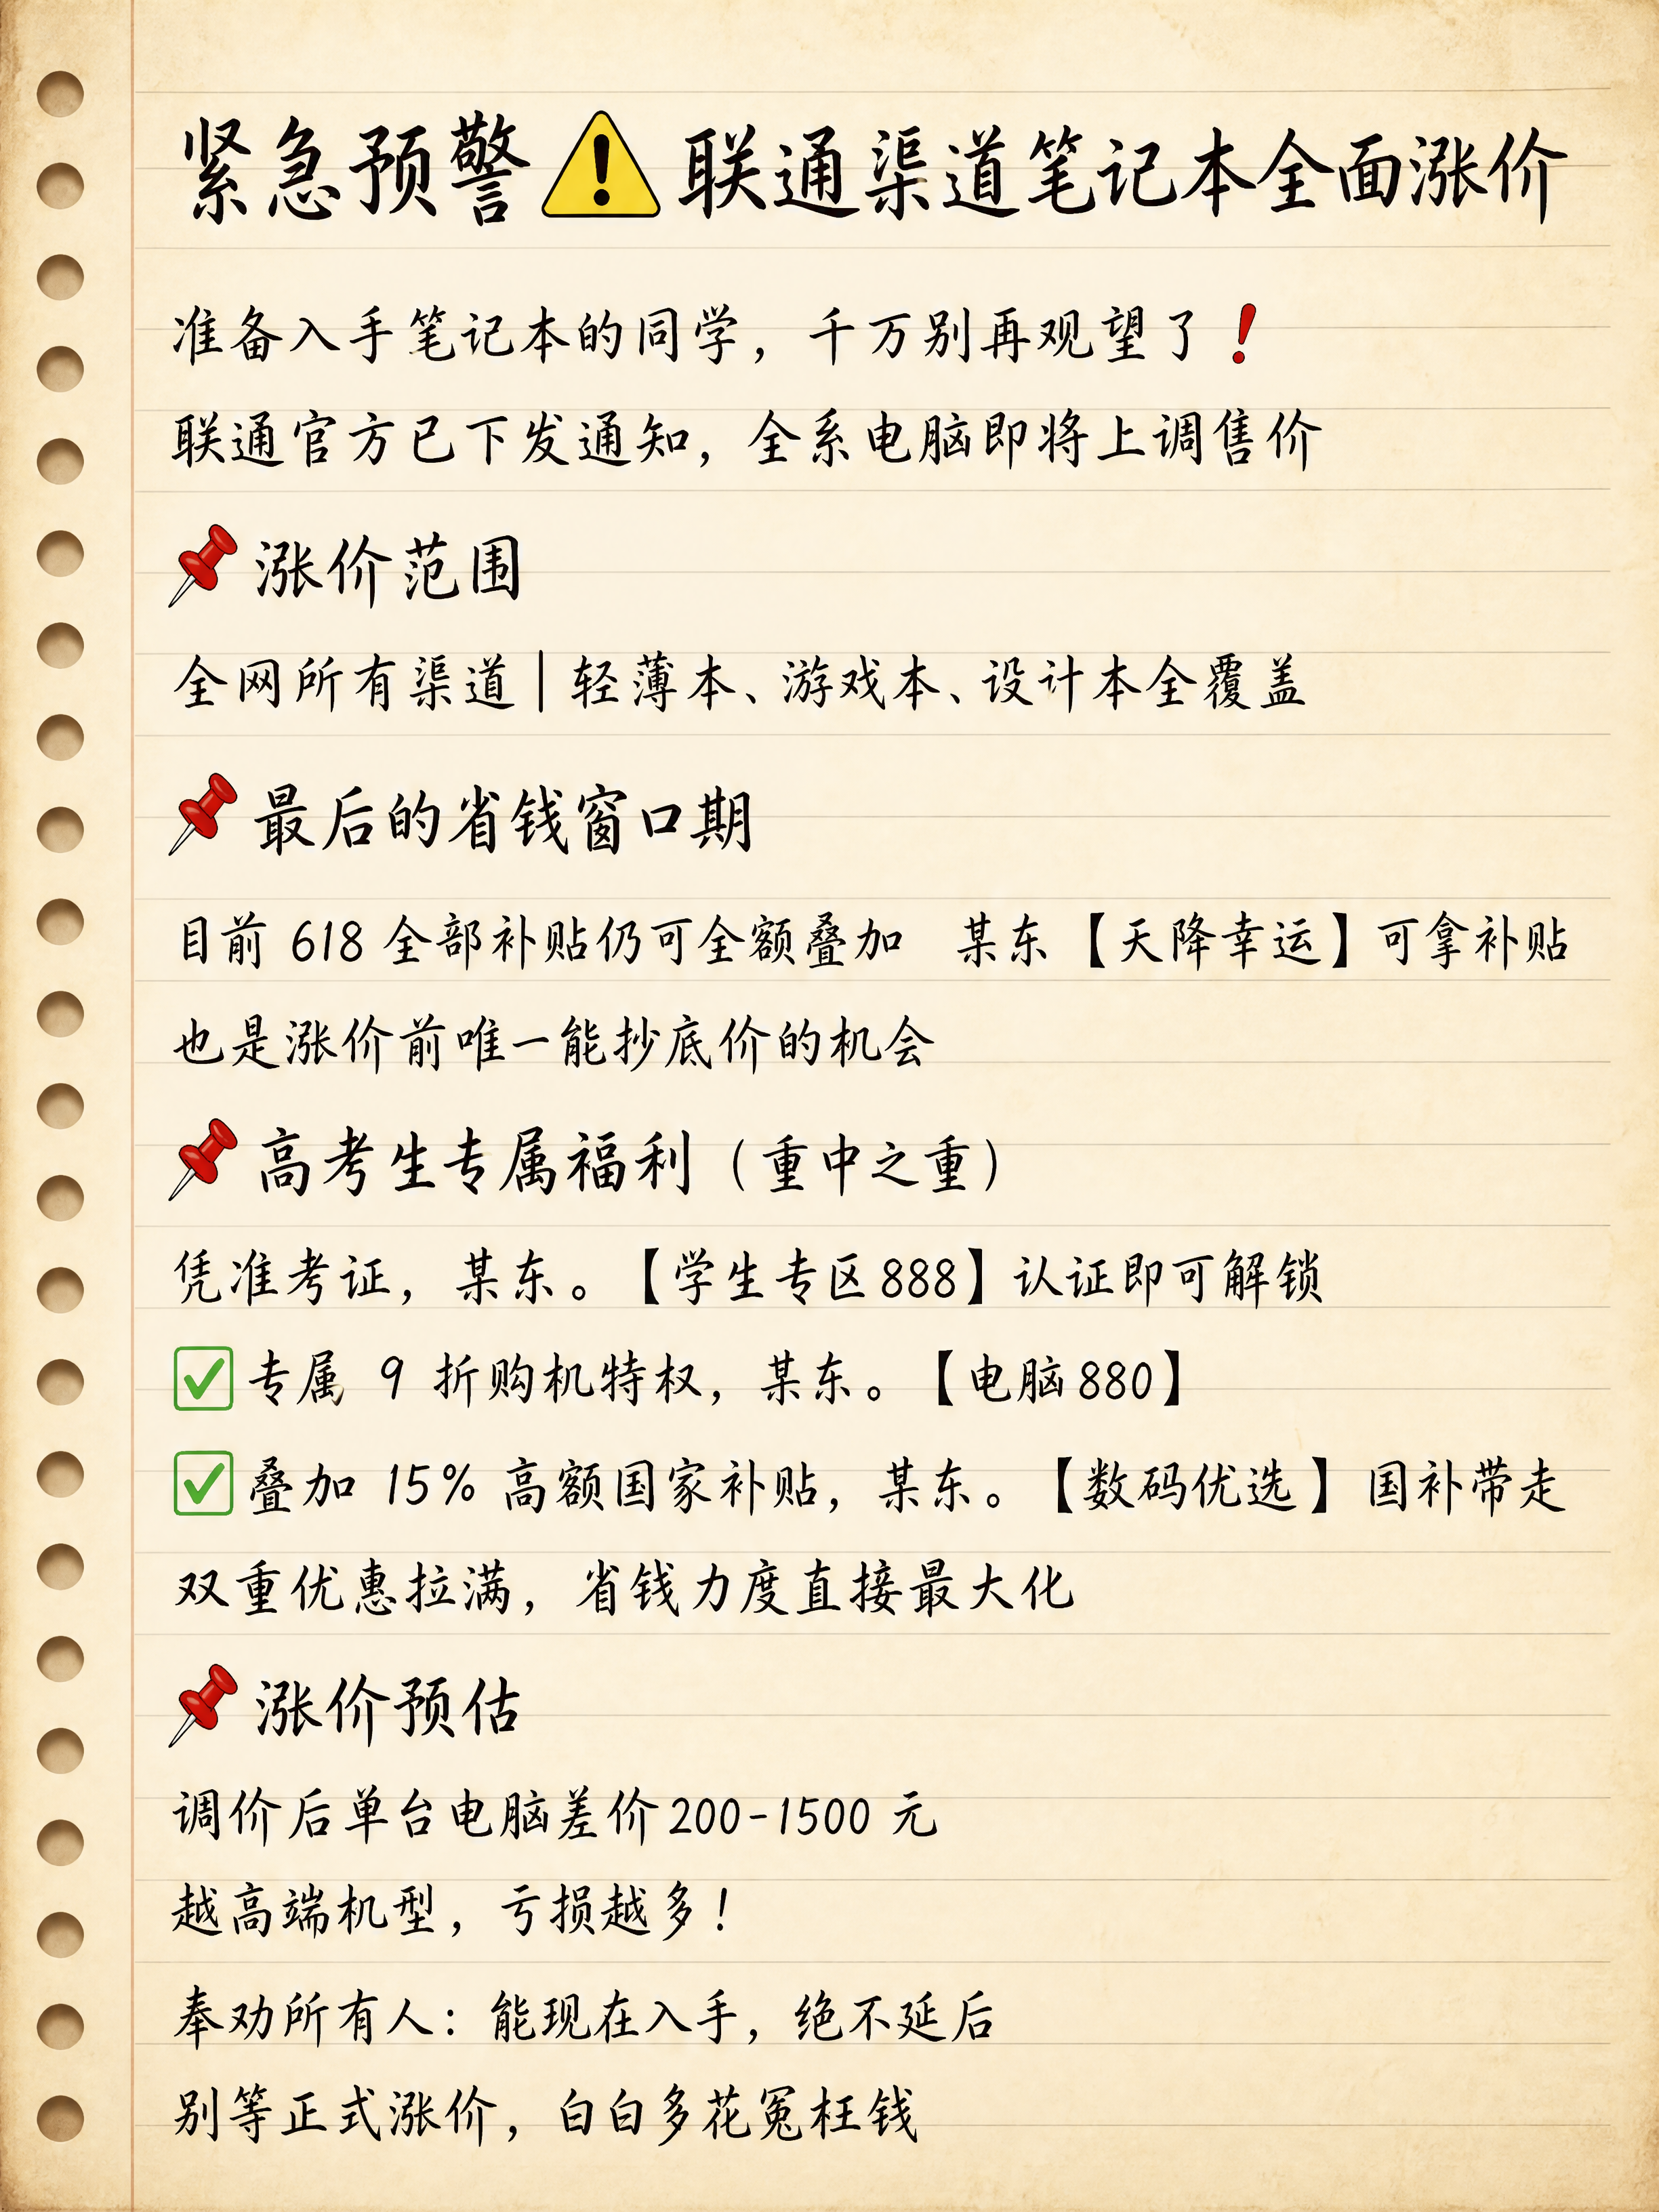 紧急预警⚠️联通渠道笔记本全面涨价
准备入手笔记本的同学，千万别再观望了❗
联通官方已下发通知，全系电脑即将上调售价
📌涨价范围
全网所有渠道|轻薄本、游戏本、设计本全覆盖
📌最后的省钱窗口期
目前 618 全部补贴仍可全额叠加 某东【天降幸运】可拿补贴
也是涨价前唯一能抄底价的机会
📌高考生专属福利（重中之重）
凭准考证，某东。【学生专区888】认证即可解锁
✅专属 9 折购机特权，某东。【电脑880】
✅叠加 15% 高额国家补贴，某东。【数码优选】国补带走
双重优惠拉满，省钱力度直接最大化
📌涨价预估
调价后单台电脑差价200-1500 元
越高端机型，亏损越多！
奉劝所有人：能现在入手，绝不延后
别等正式涨价，白白多花冤枉钱